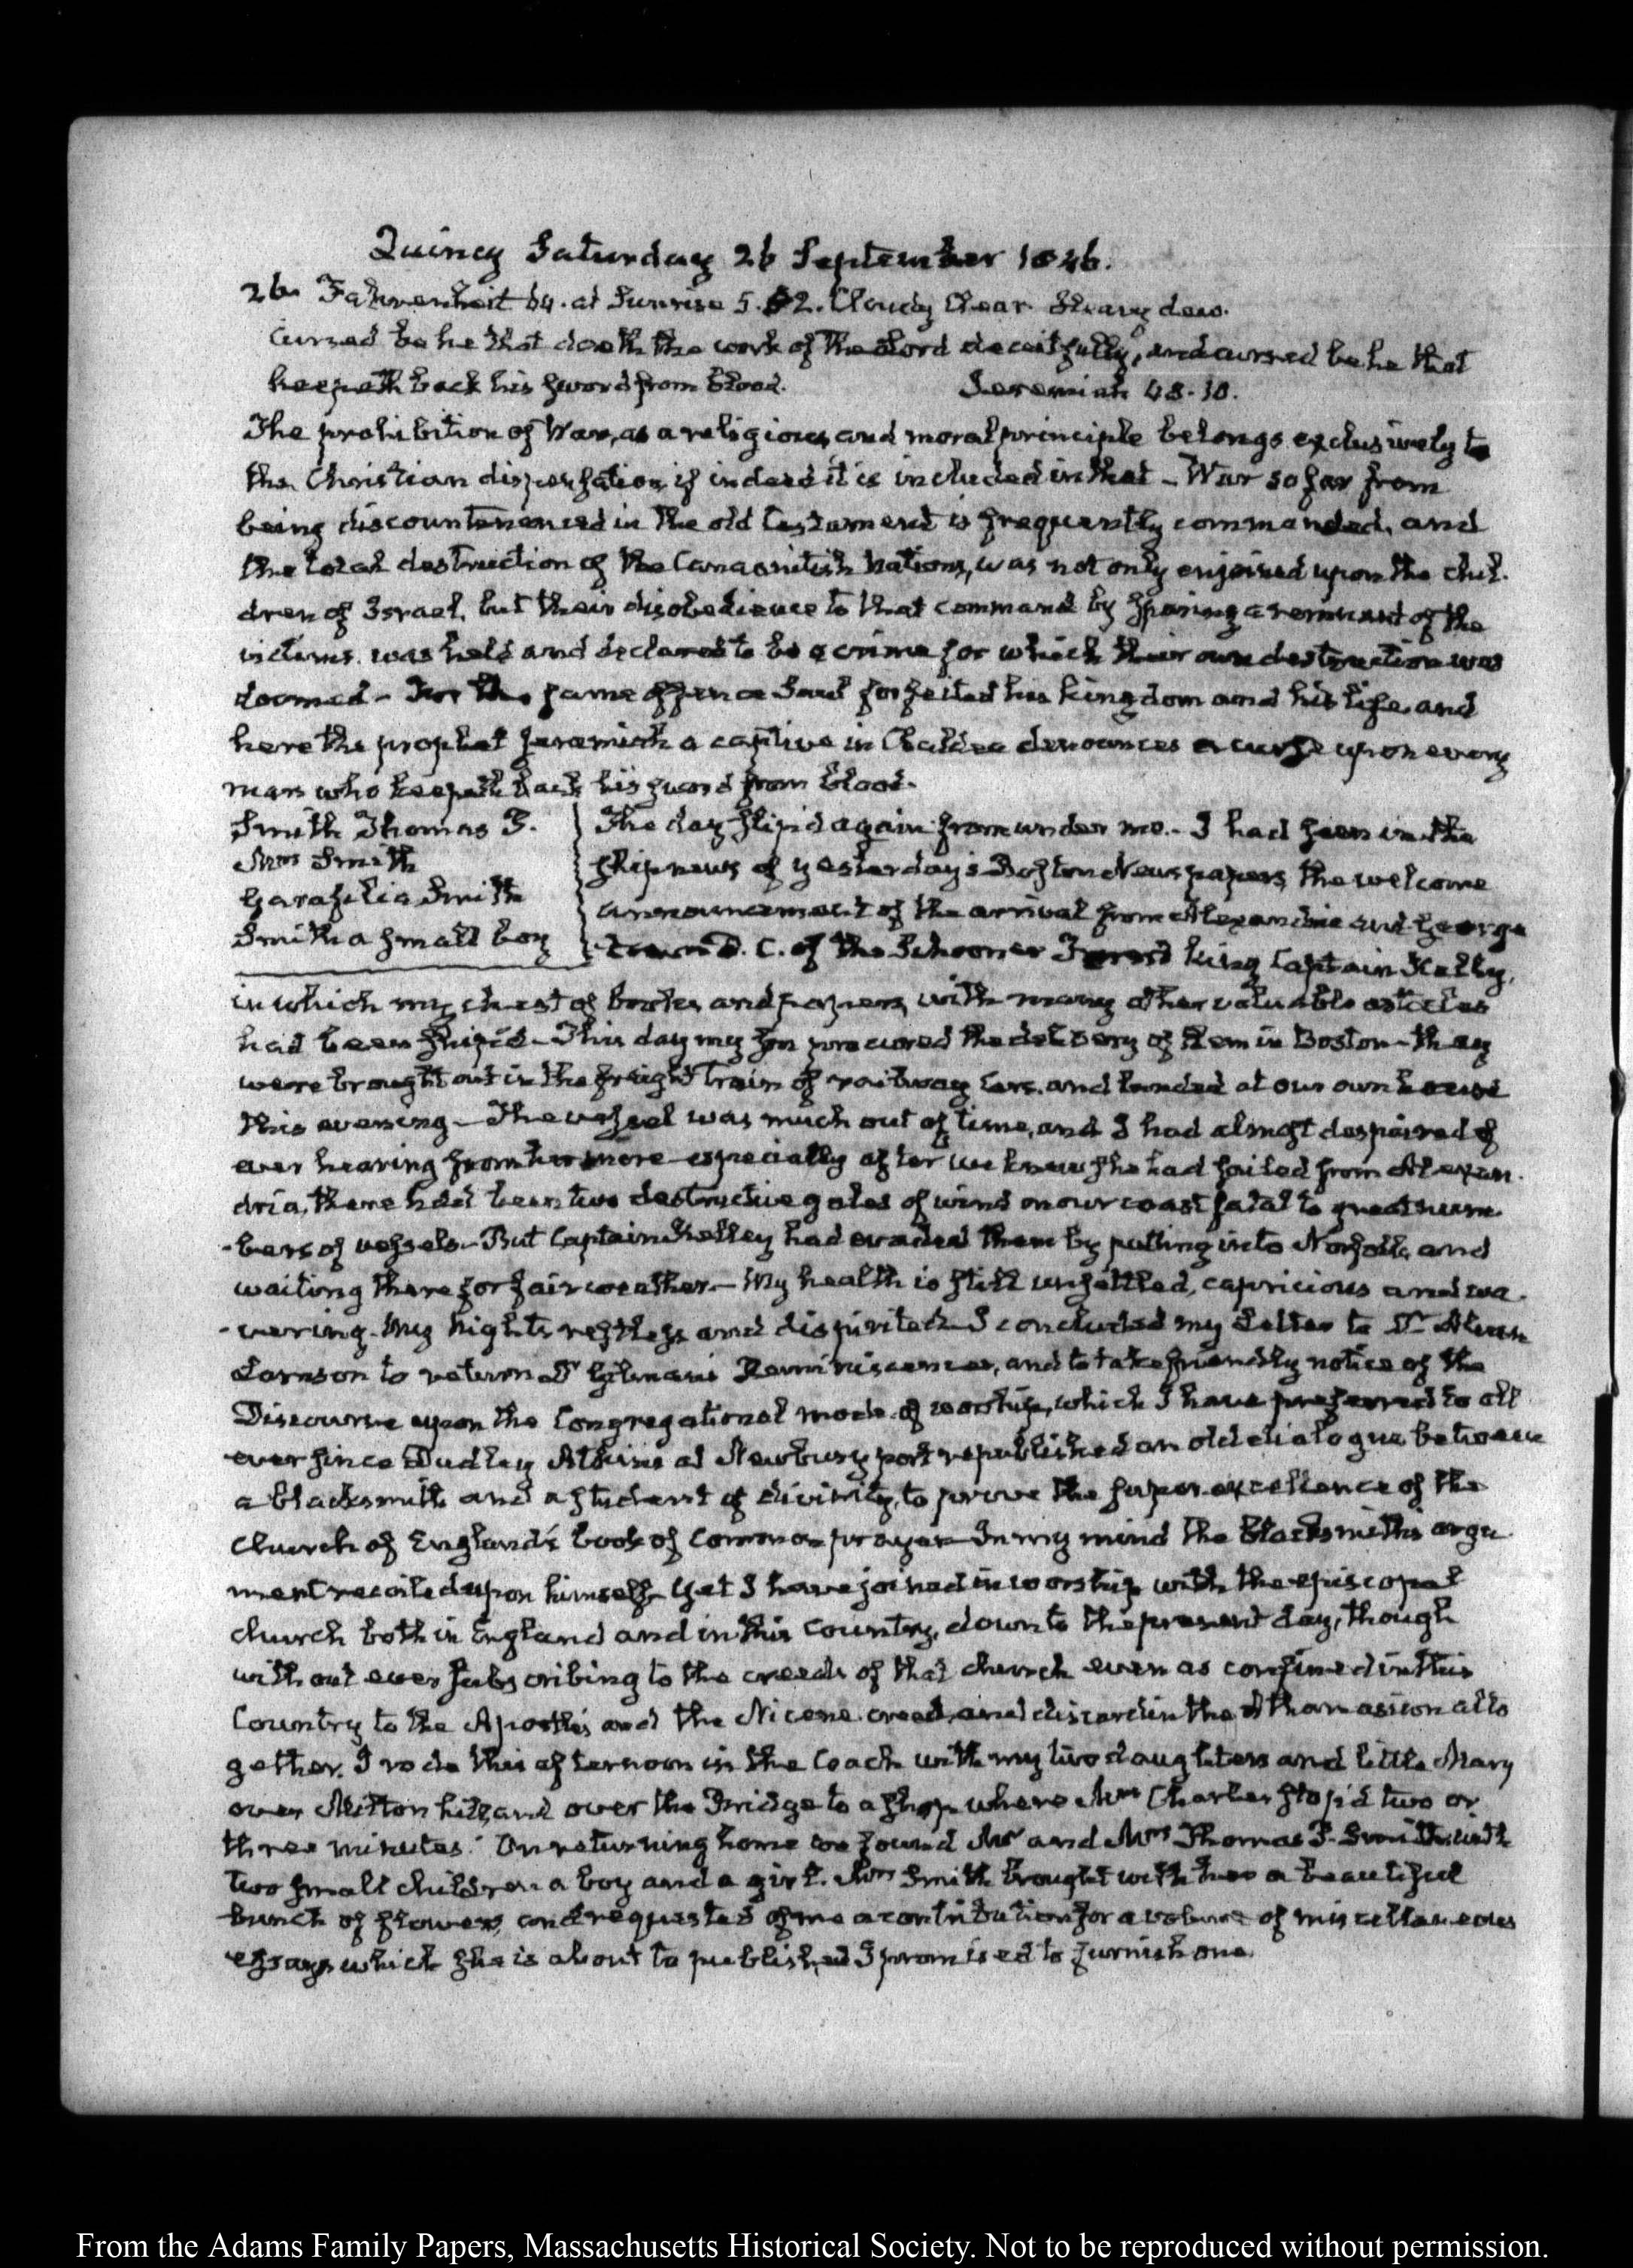 Quincy Saturday 26 September 1846.
26. Fahrenheit 64. at Sunrise 5.52. Cloudy Clear. Heavy dew.
Cursed be he that doeth the work of the Lord deceitfully, and cursed be he that
keepeth back his sword from blood. Jeremiah 48.10.
The prohibition of War, as a religious and moral principle belongs exclusively to
the Christian dispensation if indeed it is included in that – War so far from
being discountenanced in the old testament is frequently commanded, and
the total destruction of the Canaanitish Nations, was not only enjoined upon the chil-
dren of Israel, but their disobedience to that command by sparing a remnant of the
victims was held and declared to be a crime for which their own destruction was
doomed – For the same offence Saul forfeited his kingdom and his life, and
here the prophet Jeremiah a captive in Chaldea denounces a curse upon every
man who keepeth back his sword from blood.
Smith Thomas P.
Mrs Smith
Garafilia Smith
Smith a small boy
The day slip'd again from under me. – I had seen in the
ship news of yesterday's Boston Newspapers, the welcome
announcement of the arrival from Alexandria and George
town D.C. of the Schooner King Captain Kelley,
in which my chest of books and papers, with many other valuable articles
had been ship'd – This day my son procured the delivery of them in Boston – they
were brought out in the freight train of railway Cars, and landed at our own house
this evening – The vessel was much out of time, and I had almost despaired of
ever hearing from her more especially after we knew she had sailed from Alexan-
dria, there had been two destructive gales of wind on our coast fatal to great num-
-bers of vessels – But Captain Kelley had evaded them by putting into Norfolk, and
waiting there for fair weather. – My health is still unsettled, capricious and wa-
-vering. My nights restless and dispirited – I concluded my Letter to Dr Alvan
Lamson to return Dr Gilman's Reminiscences, and to take friendly notice of the
Discourse upon the Congregational mode of worship, which I have preferred to all
ever since Dudley Atkins at Newburyport republished an old dialogue between
a blacksmith and a student of divinity, to prove the super-excellence of the
Church of England's book of Common prayer – In my mind the blacksmith's argu
ment recoiled upon himself – Yet I have joined in worship with the episcopal
church both in England and in this Country, down to the present day, though
without ever subscribing to the creeds of that church even as confined in this
Country to the Apostles and the Nicene creed, and discardin the Athanasian alto
gether. I rode this afternoon in the Coach with my two daughters and little Mary
over Milton hill, and over the Bridge to a shop where Mrs Charles stop'd two or
three minutes. On returning home we found Mr and Mrs Thomas P. Smith with
two small children a boy and a girl. Mrs Smith brought with her a beautiful
bunch of flowers, and requested of me a contribution for a volume of miscellaneous
essays which she is about to publish, and I promised to furnish one.
From the Adams Family Papers, Massachusetts Historical Society. Not to be reproduced without permission.